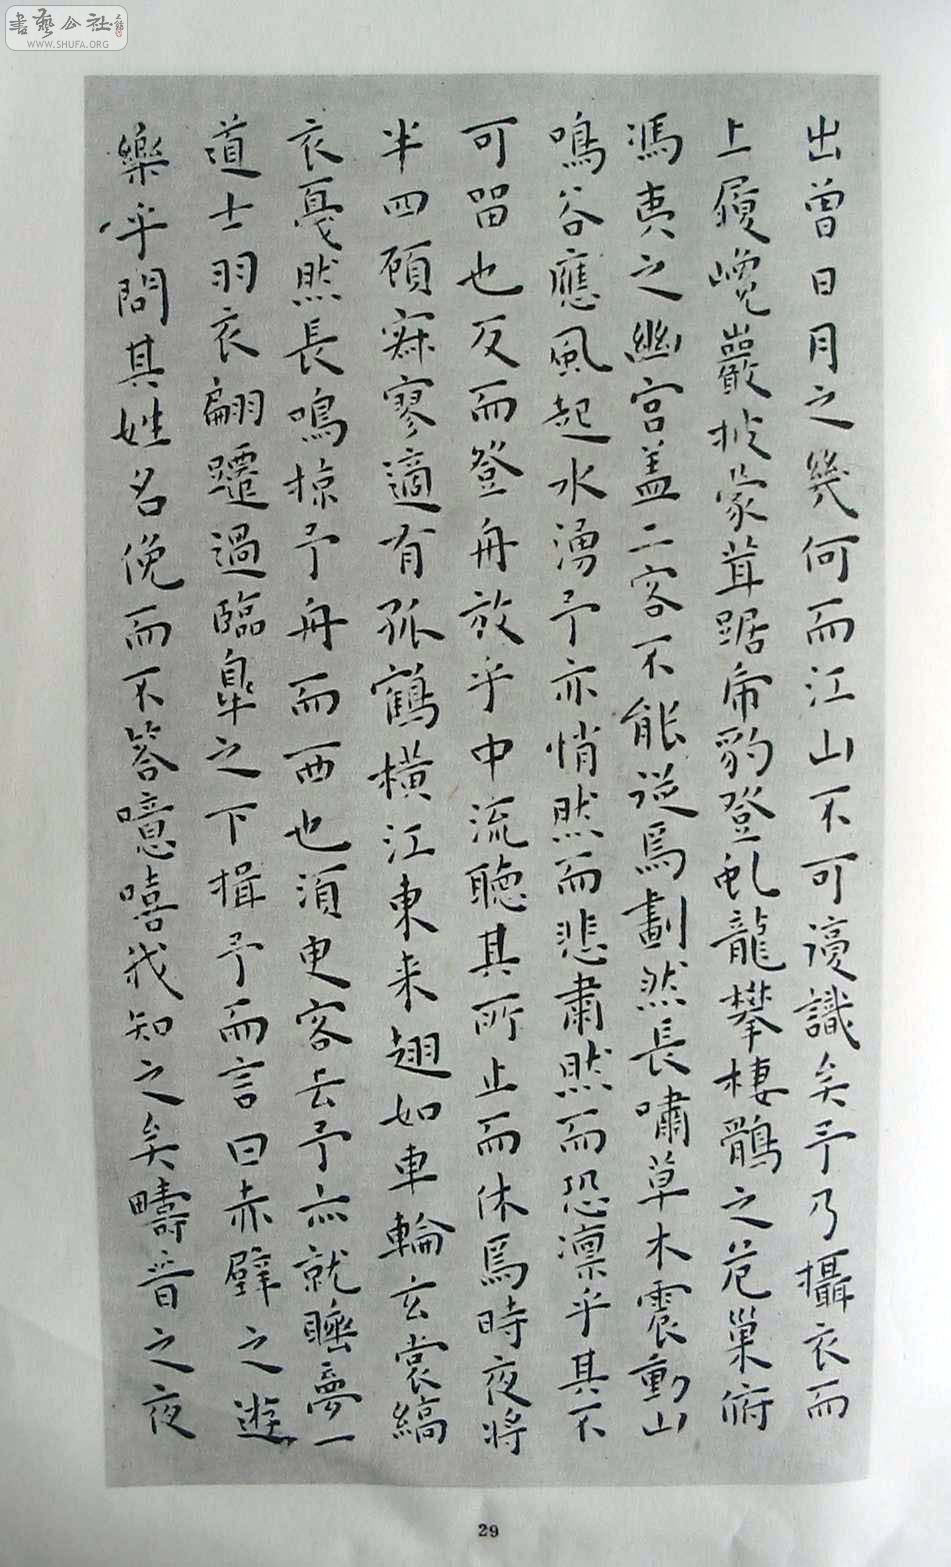 書藝公社
WWW.SHUFA.ORG
出曾日月之幾何而江山不可復識矣予乃攝衣而
上履巉巖披蒙茸踞虎豹登虬龍攀棲鶻之危巢俯
馮夷之幽宮盖二客不能從焉劃然長嘯草木震動山
鳴谷應風起水湧予亦悄然而悲肅然而恐凛乎其不
可留也反而登舟放乎中流聽其所止而休焉時夜將
半四顧寂寥適有孤鶴橫江東来翅如車輪玄裳縞
衣戛然長鳴掠予舟而西也須臾客去予亦就睡夢一
道士羽衣翩躚過臨皐之下揖予而言曰赤壁之遊
樂乎問其姓名俛而不答噫嘻我知之矣疇昔之夜
29